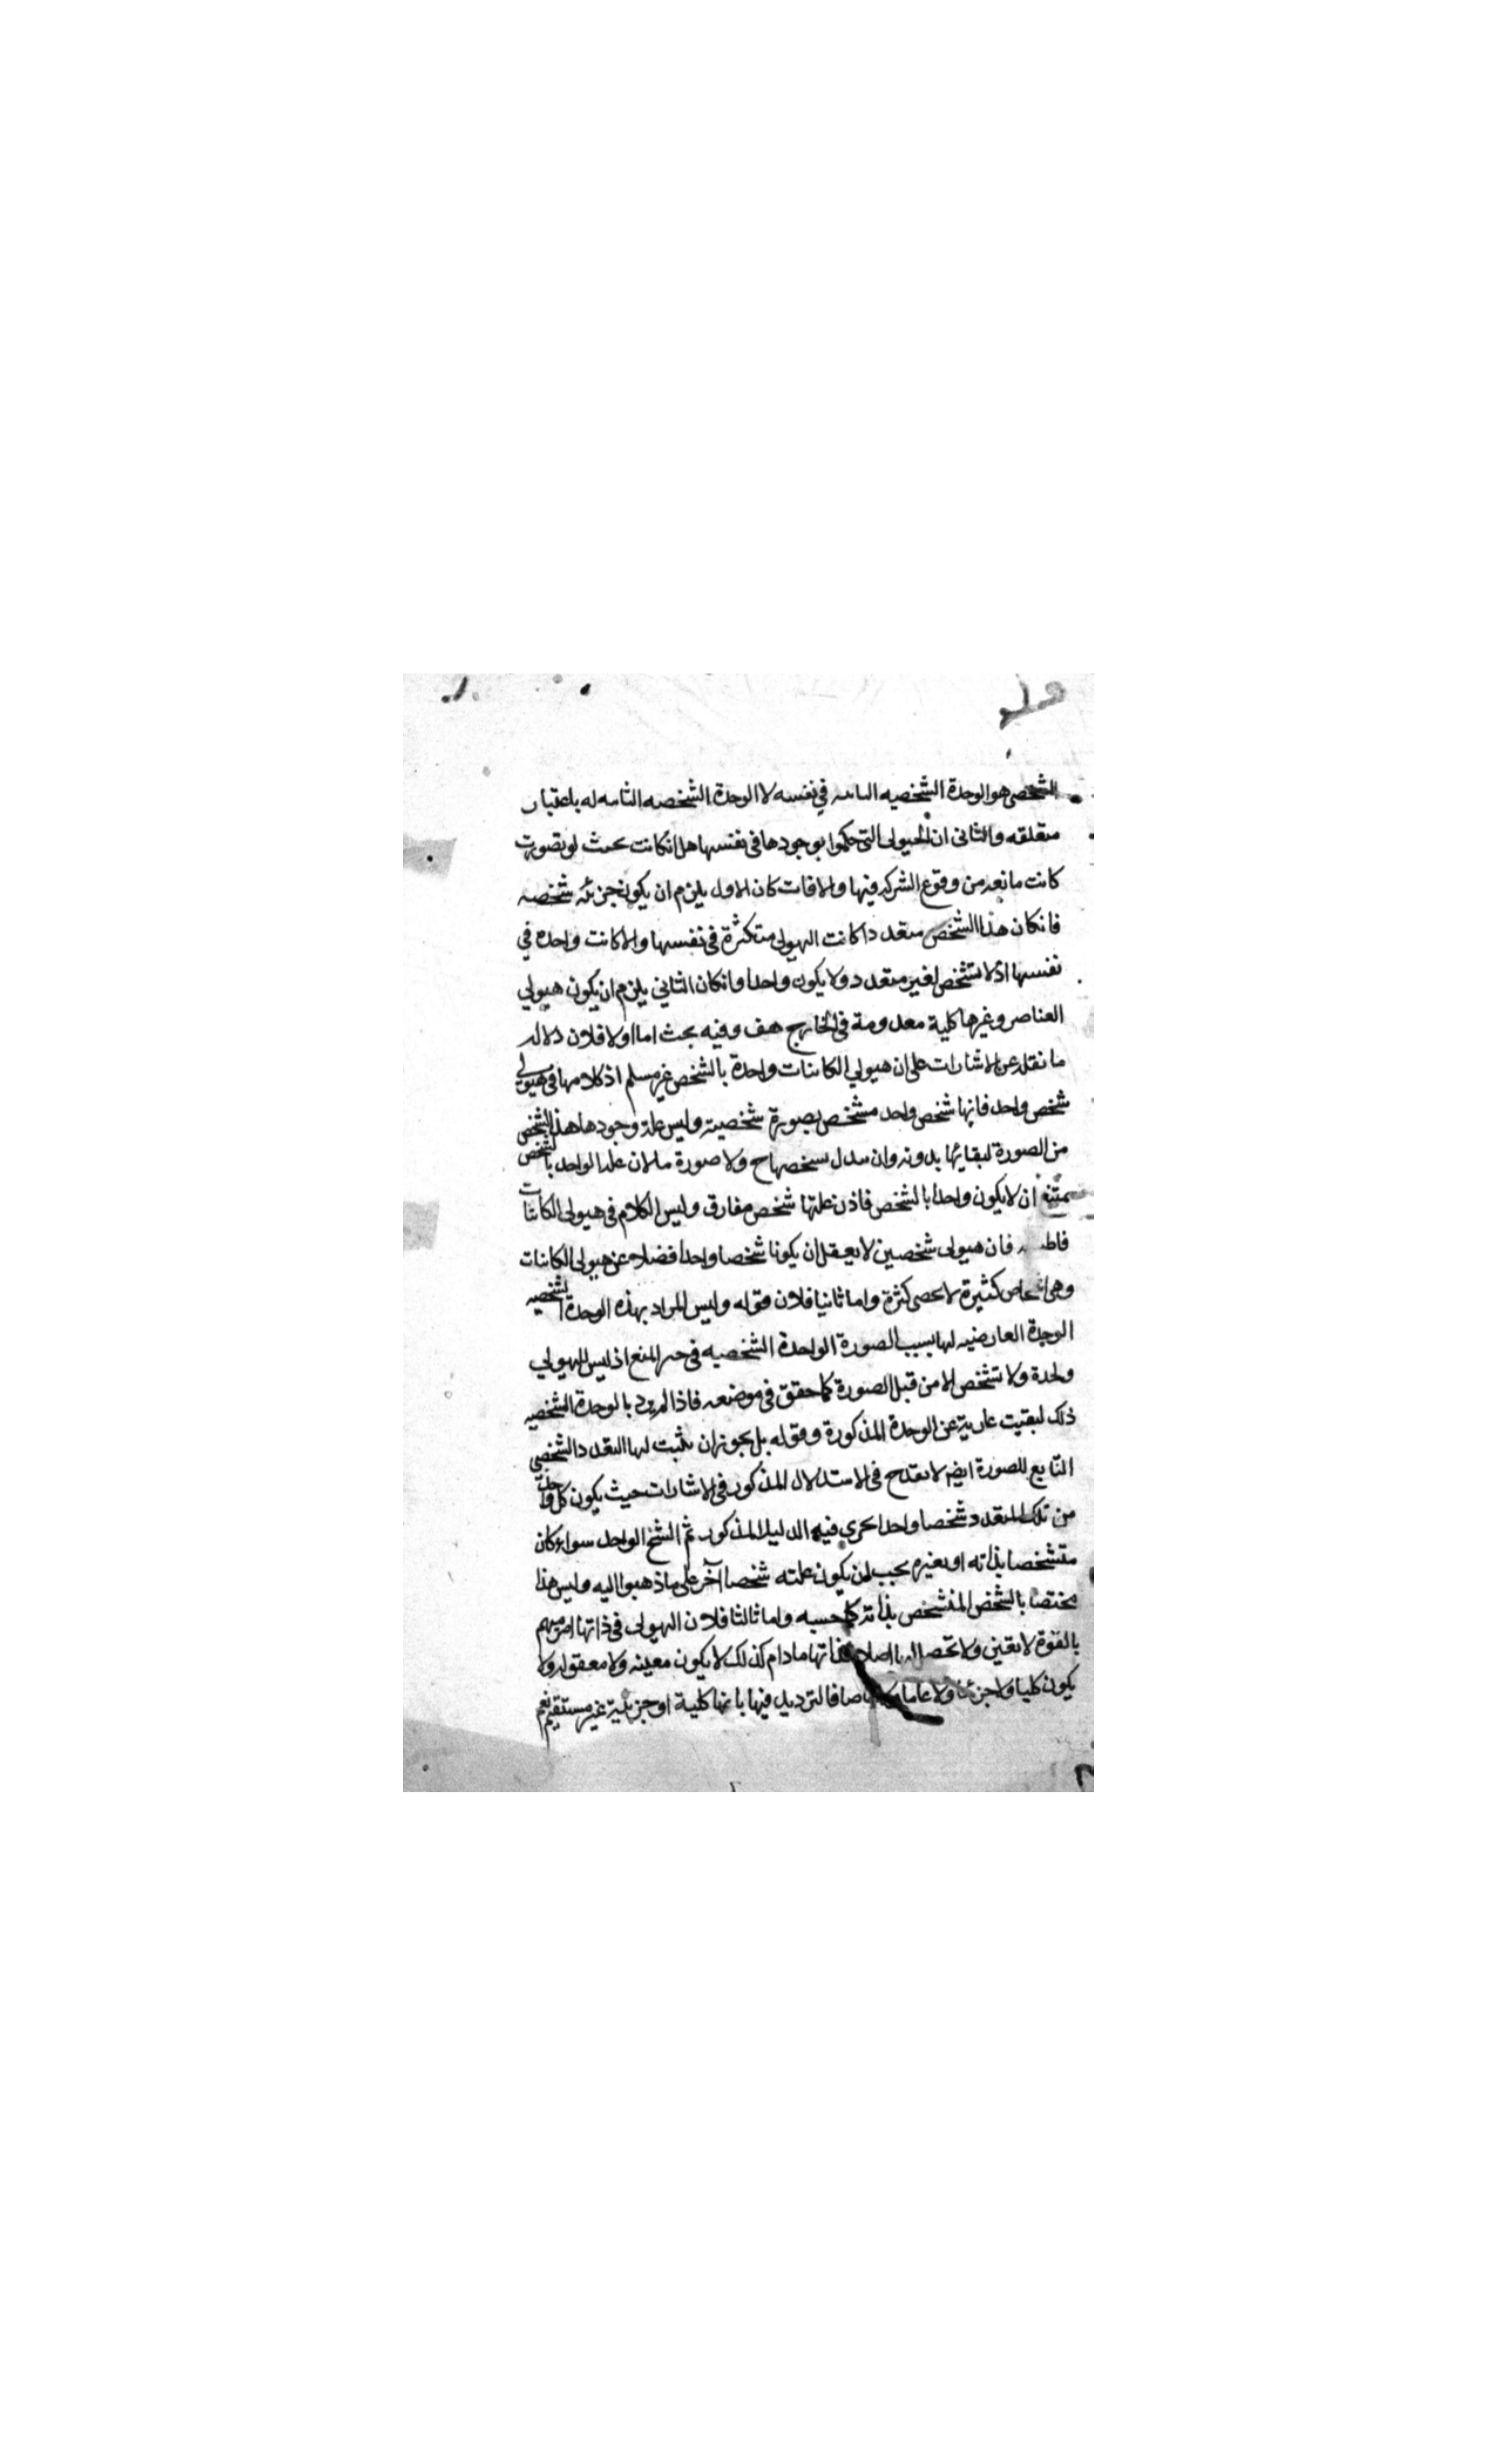 الشخصى هو الوحدة الشخصيه الثابته في نفسه لا الوحدة الشخصه الثابته له باعتبار
متعلقه والثانى ان الهيولى التى حكموا بوجودها فى نفسها هل انكانت بحيث لو تصورت
كانت مانعه من وقوع الشركه فيها والا فات كان الاول يلزم ان يكون جزئيه شخصيه
فانكان هذا الشخص متعددا كانت الهيولى متكثرة فى نفسها والا كانت واحده في
نفسها اذ لا تشخص لغير متعدد ولا يكون واحدا وانكان الثاني يلزم ان يكون هيولي
العناصر وغيرها كلية معدومة فى الخارج هف وفيه بحث اما اولا فلان دلاله
ما نقله عن الاشارات على ان هيولي الكائنات واحدة بالشخص غير مسلم اذ كلامها فى هيولي
شخص واحد فانها شخص واحد مشخص بصورة شخصية وليس علة وجودها هذا الشخص
من الصورة لبقائها بدونه وان تبدل تشخصها ح ولا صورة ما لان علة الواحد بالشخص
يمتنع ان لا يكون واحدا بالشخص فاذن علتها شخص مفارق وليس الكلام فى هيولى الكائنات
فان هيولى شخصين لا يعقل ان يكونا شخصا واحدا فضلا عن هيولى الكائنات
وهى اشخاص كثيرة لا تحصى كثرة واما ثانيا فلان قوله وليس المراد بهذه الوحدة الشخصيه
الوحدة العارضيه لها بسبب الصورة الواحدة الشخصيه فى حيز المنع اذ ليس للهيولي
واحدة ولا تشخص الا من قبل الصورة كما حقق فى موضعه فاذا لم يرد بالوحدة الشخصيه
ذلك لبقيت عارية عن الوحدة المذكورة وقوله بل يجوز ان يثبت لها التعدد الشخصي
التابع للصورة ايضا لا يقدح فى الاستدلال المذكور فى الاشارات حيث يكون كل واحد
من تلك المتعدد شخصا واحدا يجرى فيه الدليل المذكور ثم الشخ الواحد سواء كان
متشخصا بذاته او بغيره يجب ان يكون علته شخصا آخر على ما ذهبوا اليه وليس هذا
مختصا بالشخص المتشخص بذاته كما حسبه واما ثالثا فلان الهيولى فى ذاتها امر مبهم
بالقوة لا تعين ولا تحصل لها اصلا فذاتها مادام كذلك لا يكون معينه ولا معقوله ولا
يكون كليا ولا جزئيا ولا عاما ولا خاصا فالترديد فيها بانها كلية او جزئية غير مستقيم نعم